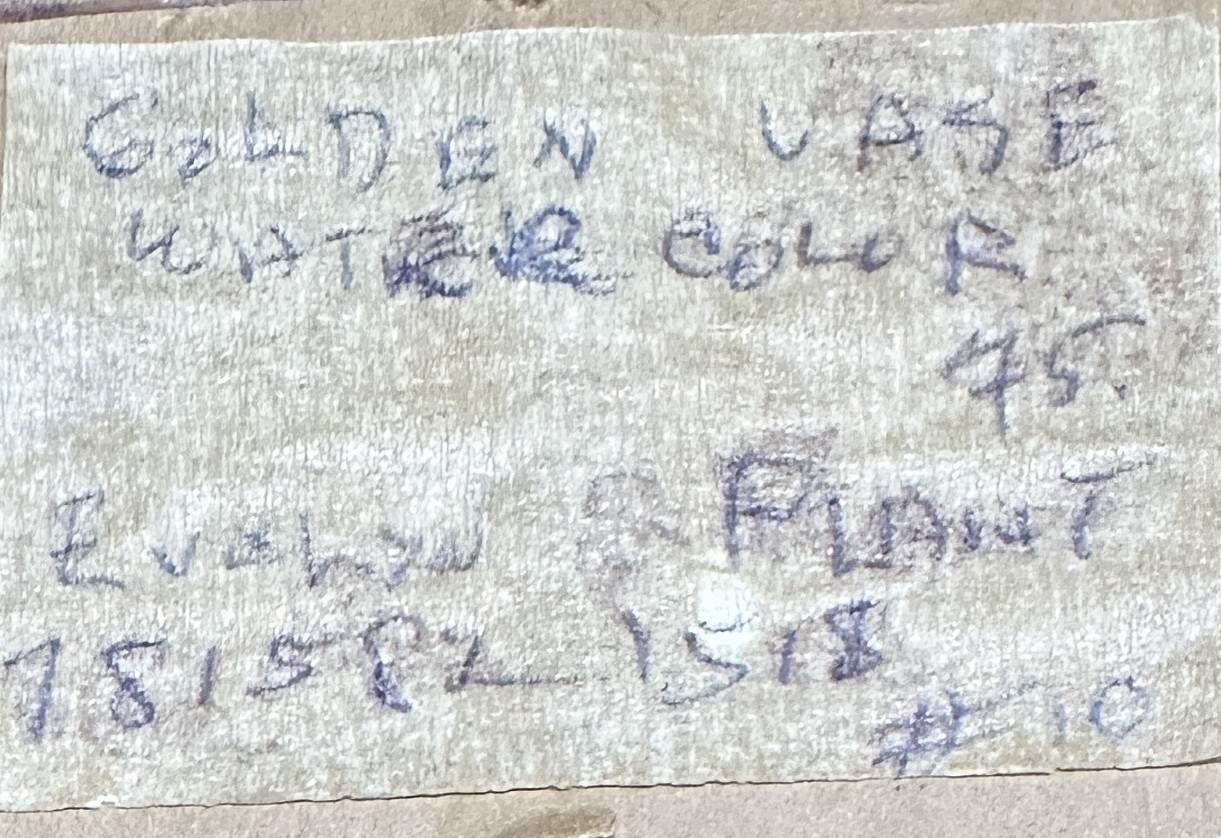 GOLDEN VASE
WATER COLOR
45.
EVELYN R PLANT
781 582 1518
# 10